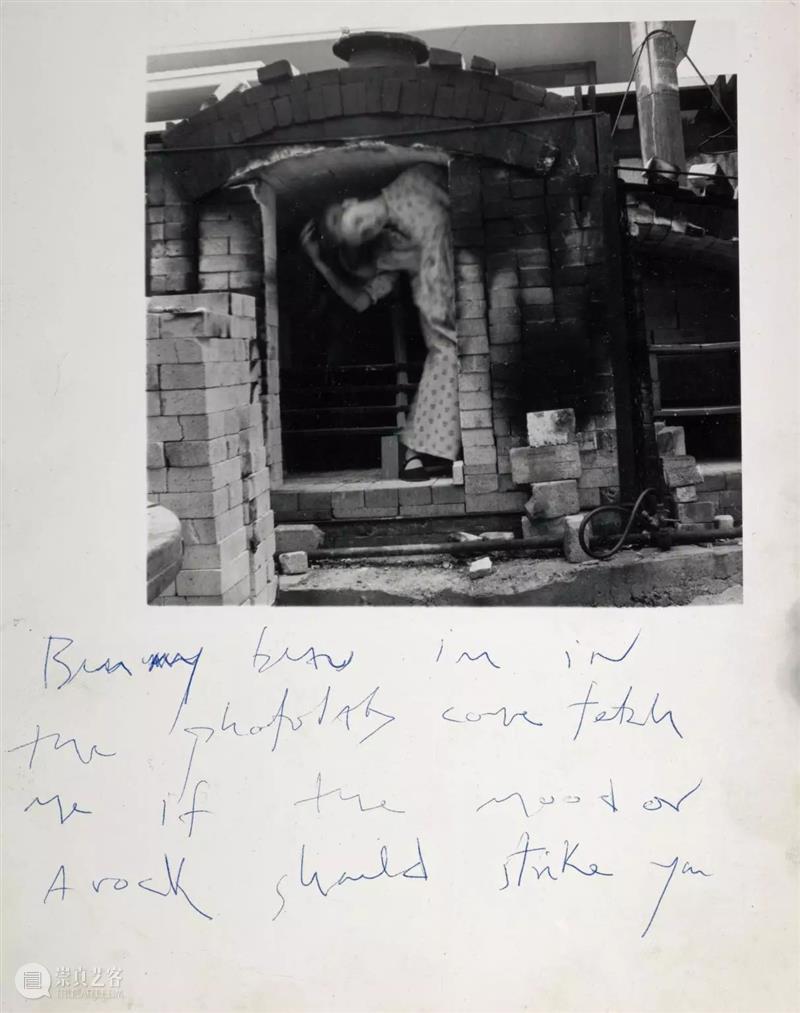 Bunny im in
the photolab come fetch
me if the mood or
A rock should strike you
崇真艺客